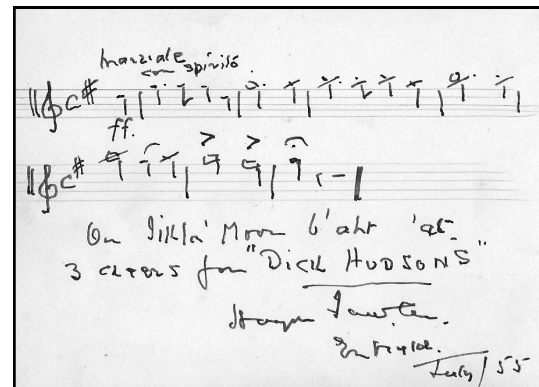 marziale
con spirito
ff.
On Ilkla' Moor b'aht 'at
3 cheers for "DICK HUDSON'S"
July / 55